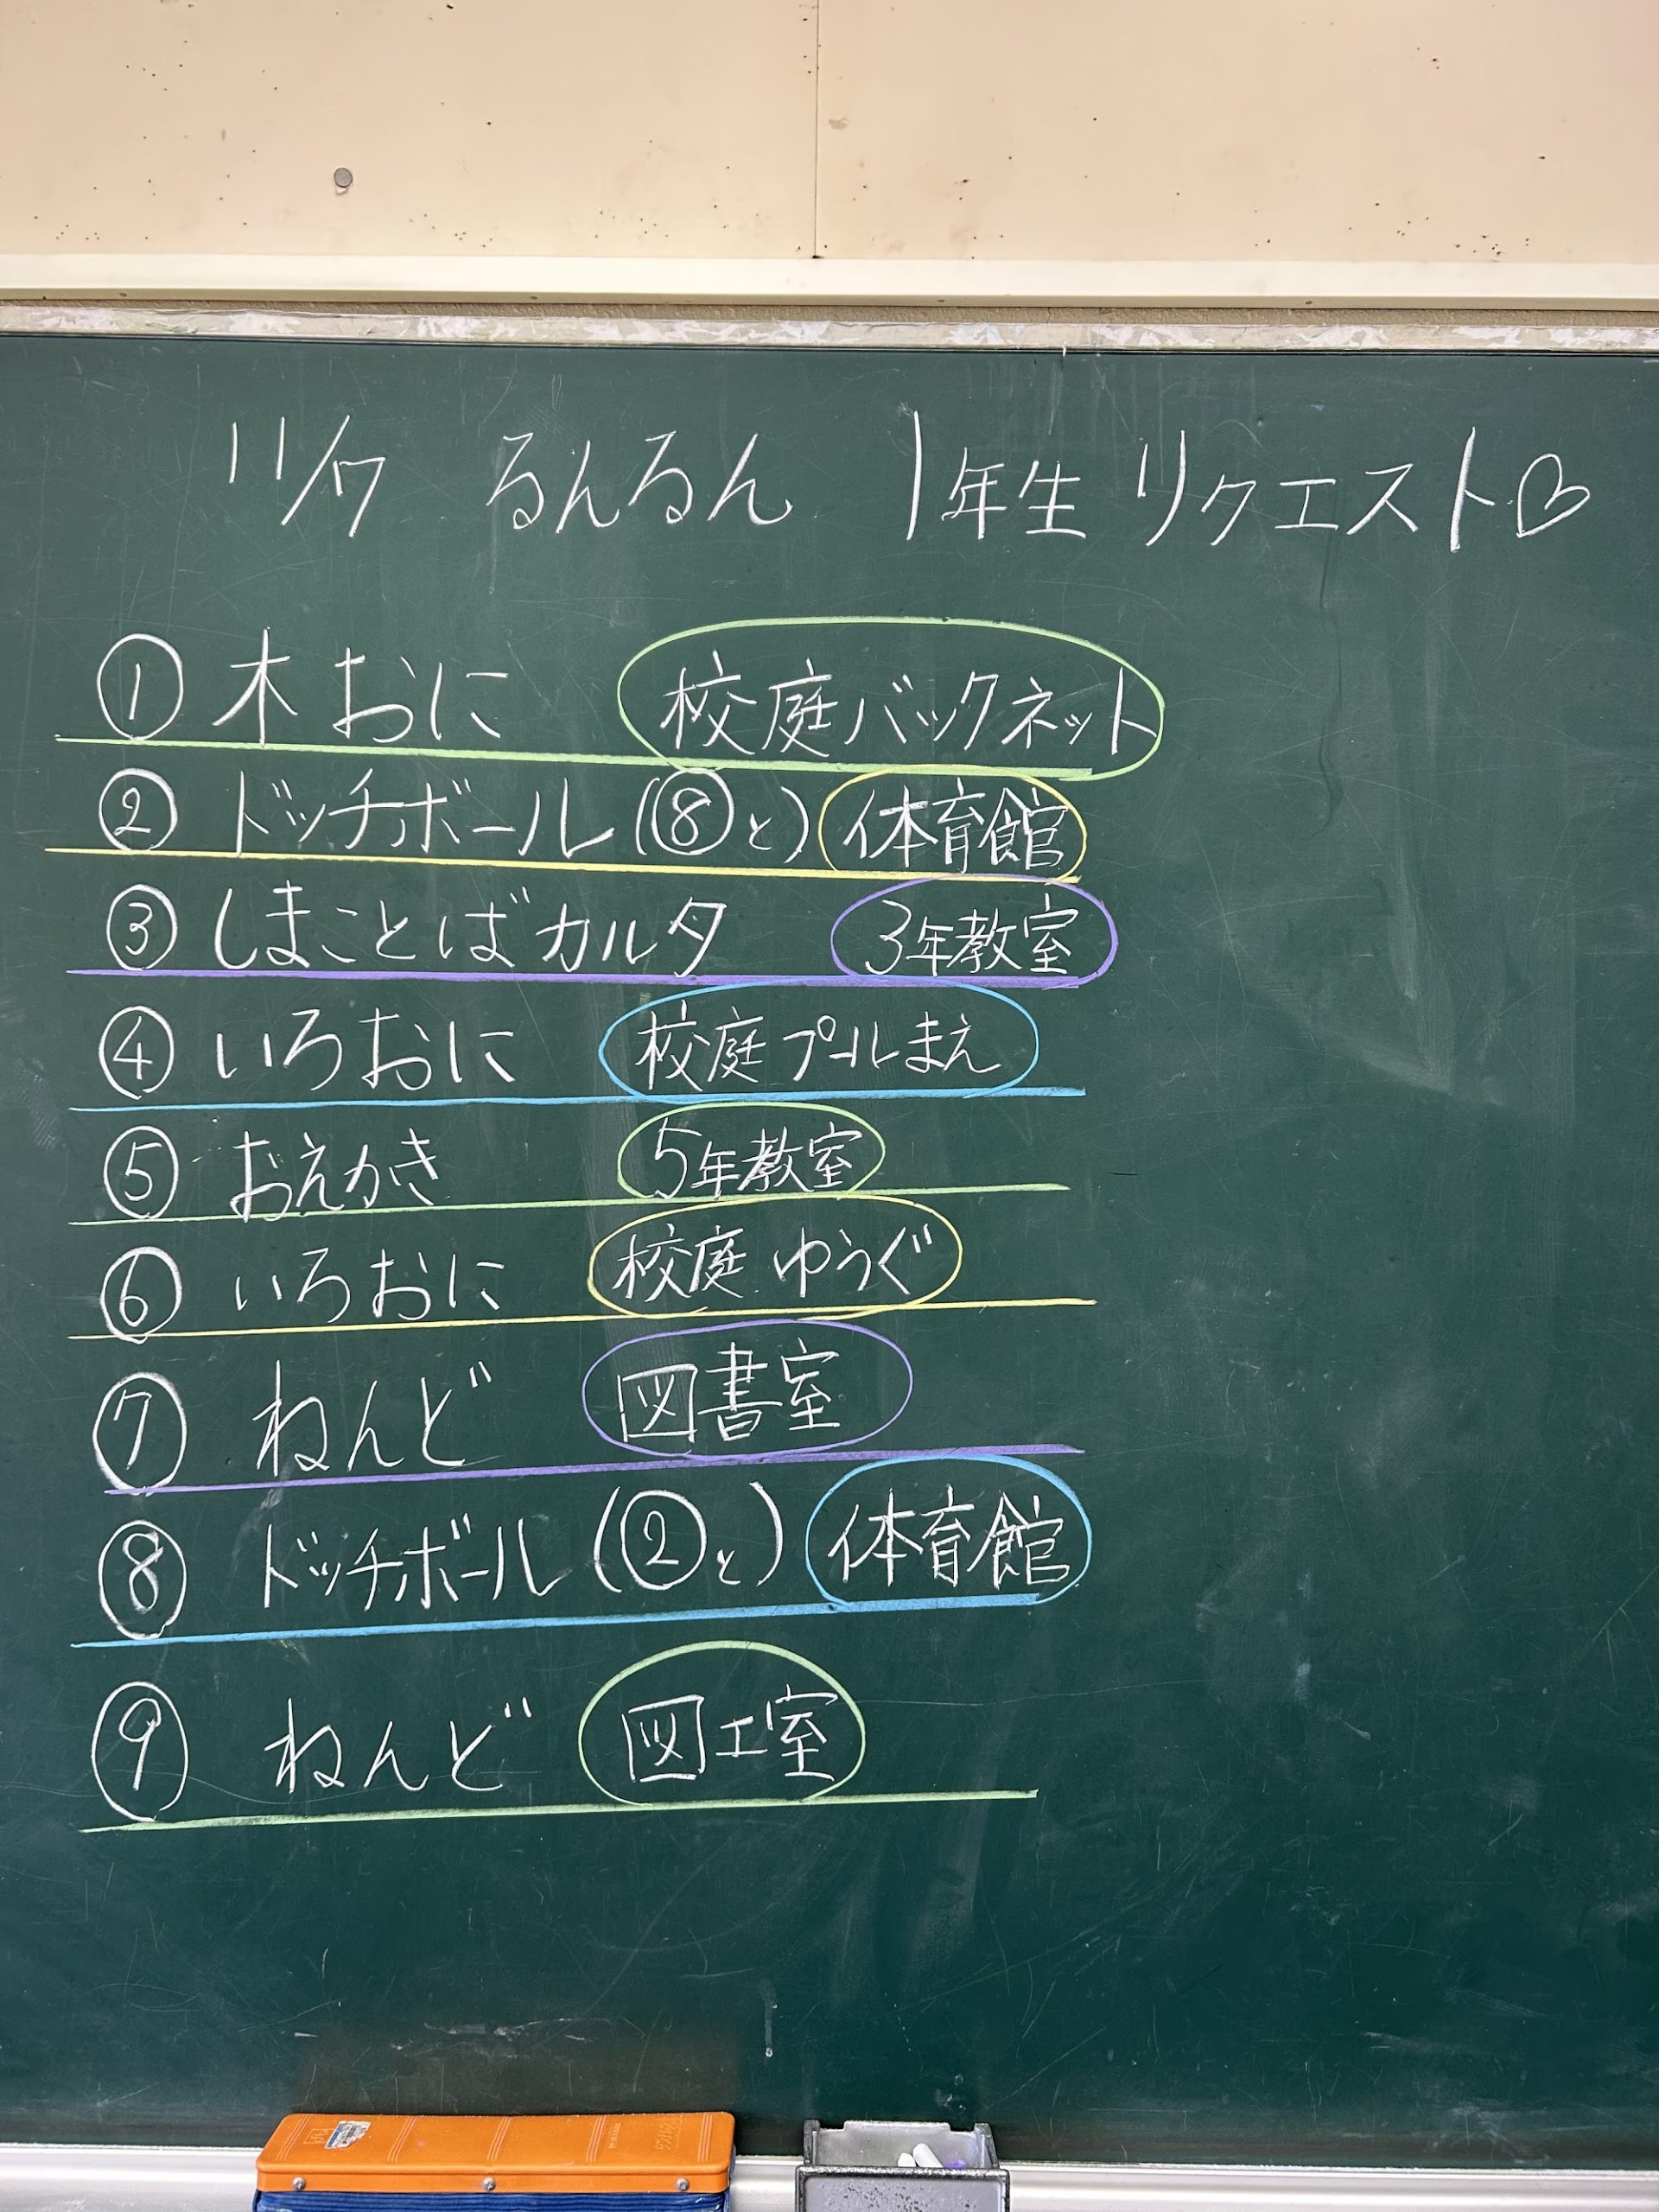 11/7 るんるん 1年生リクエスト♡
① 木おに 校庭バックネット
② ドッチボール(⑧と) 体育館
③ しまことばカルタ 3年教室
④ いろおに 校庭プールまえ
⑤ おえかき 5年教室
⑥ いろおに 校庭ゆうぐ
⑦ ねんど 図書室
⑧ ドッチボール(②と) 体育館
⑨ ねんど 図工室